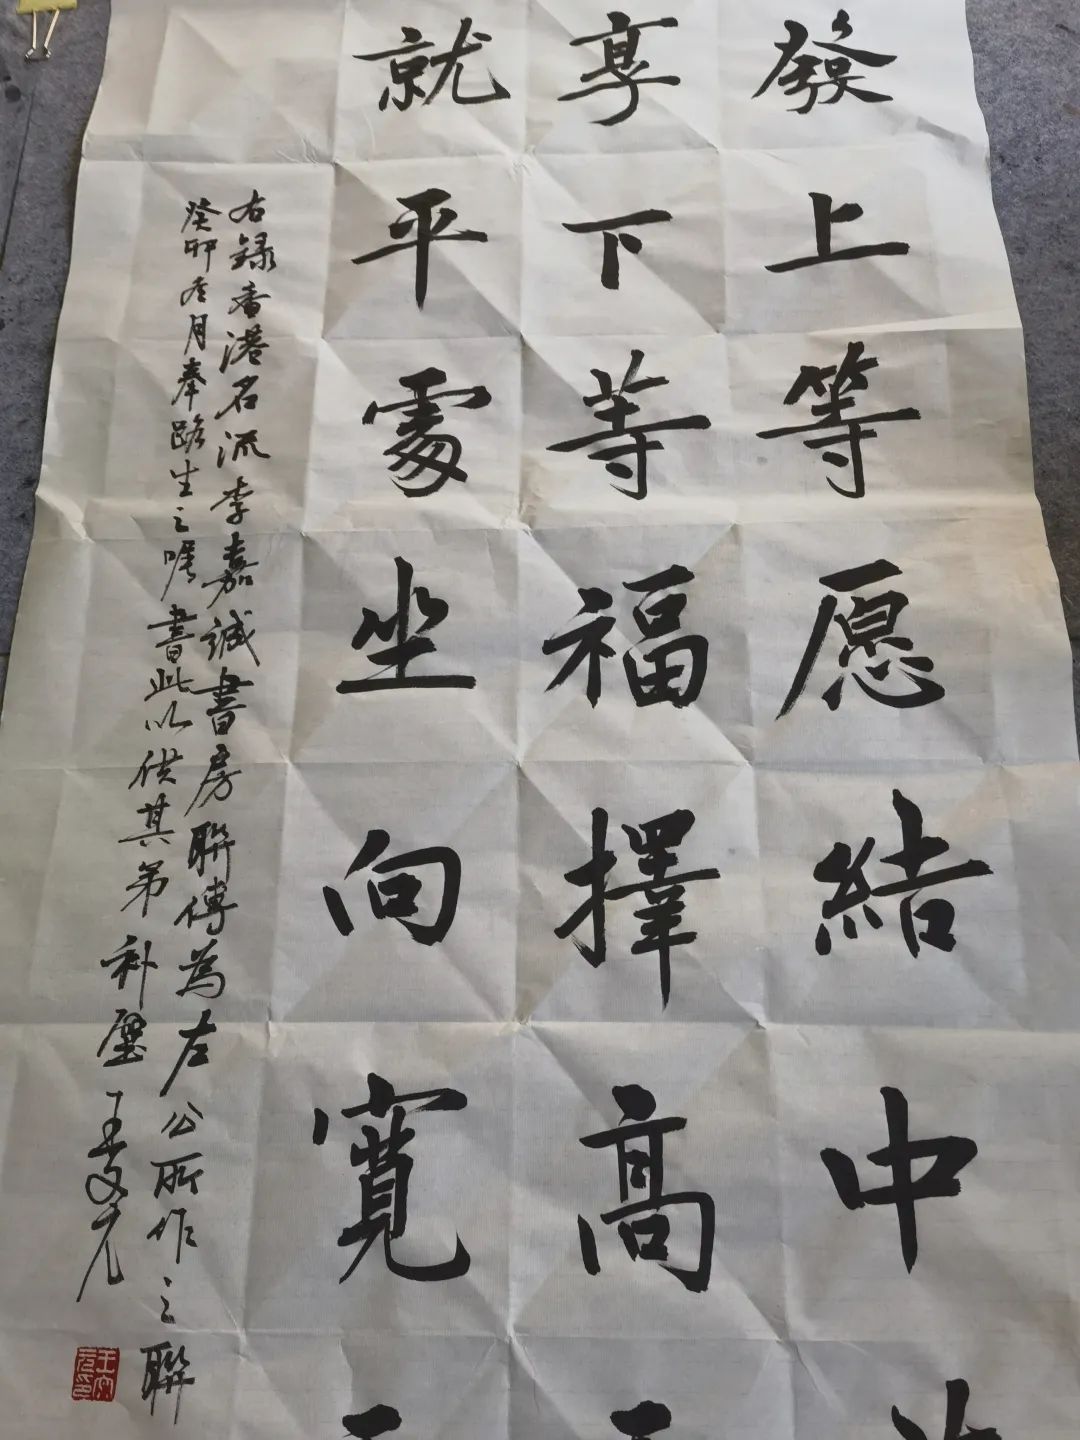 發上等愿結中
享下等福擇高
就平處坐向寬
右録香港名流李嘉誠書房聯傳為左公所作之聯
癸卯冬月奉路生之嘱書此以供其弟補壁王文元